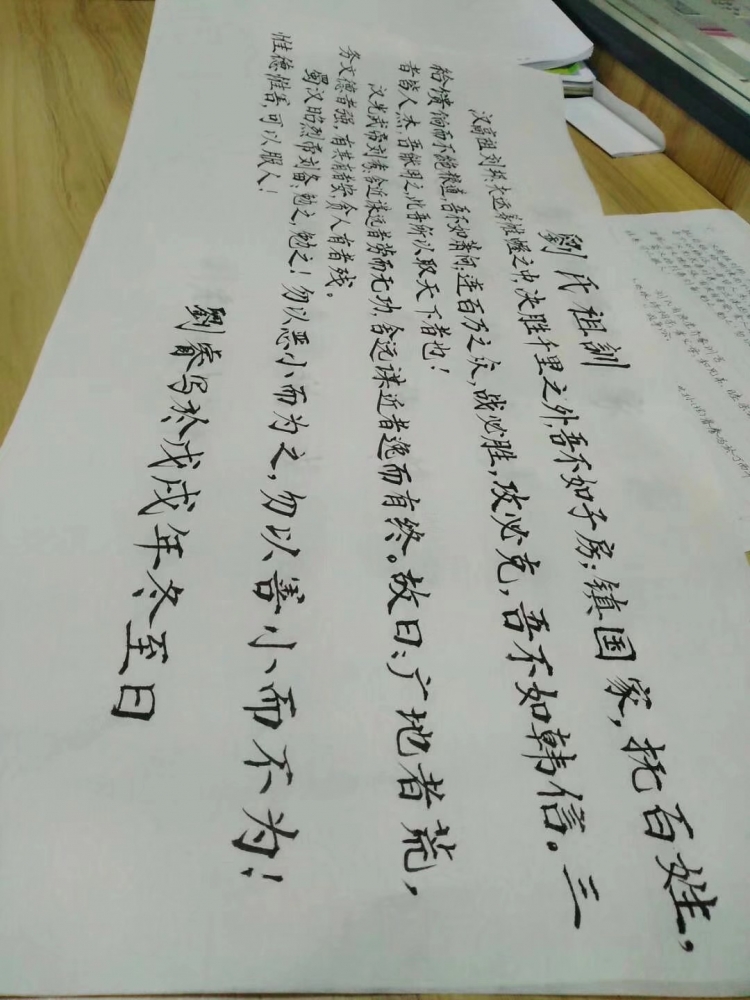 劉氏祖訓
汉高祖刘邦：夫运筹帷幄之中，决胜千里之外，吾不如子房；镇国家，抚百姓，
给馈饷而不绝粮道，吾不如萧何；连百万之众，战必胜，攻必克，吾不如韩信。三
者皆人杰，吾能用之，此吾所以取天下者也！
汉光武帝刘秀：舍近谋远者劳而无功，舍远谋近者逸而有终。故曰：广地者荒，
务文德者强，有其有者安，贪人有者残。
蜀汉昭烈帝刘备：勉之，勉之！勿以恶小而为之，勿以善小而不为！
惟德惟善，可以服人！
劉睿写於戊戌年冬至日